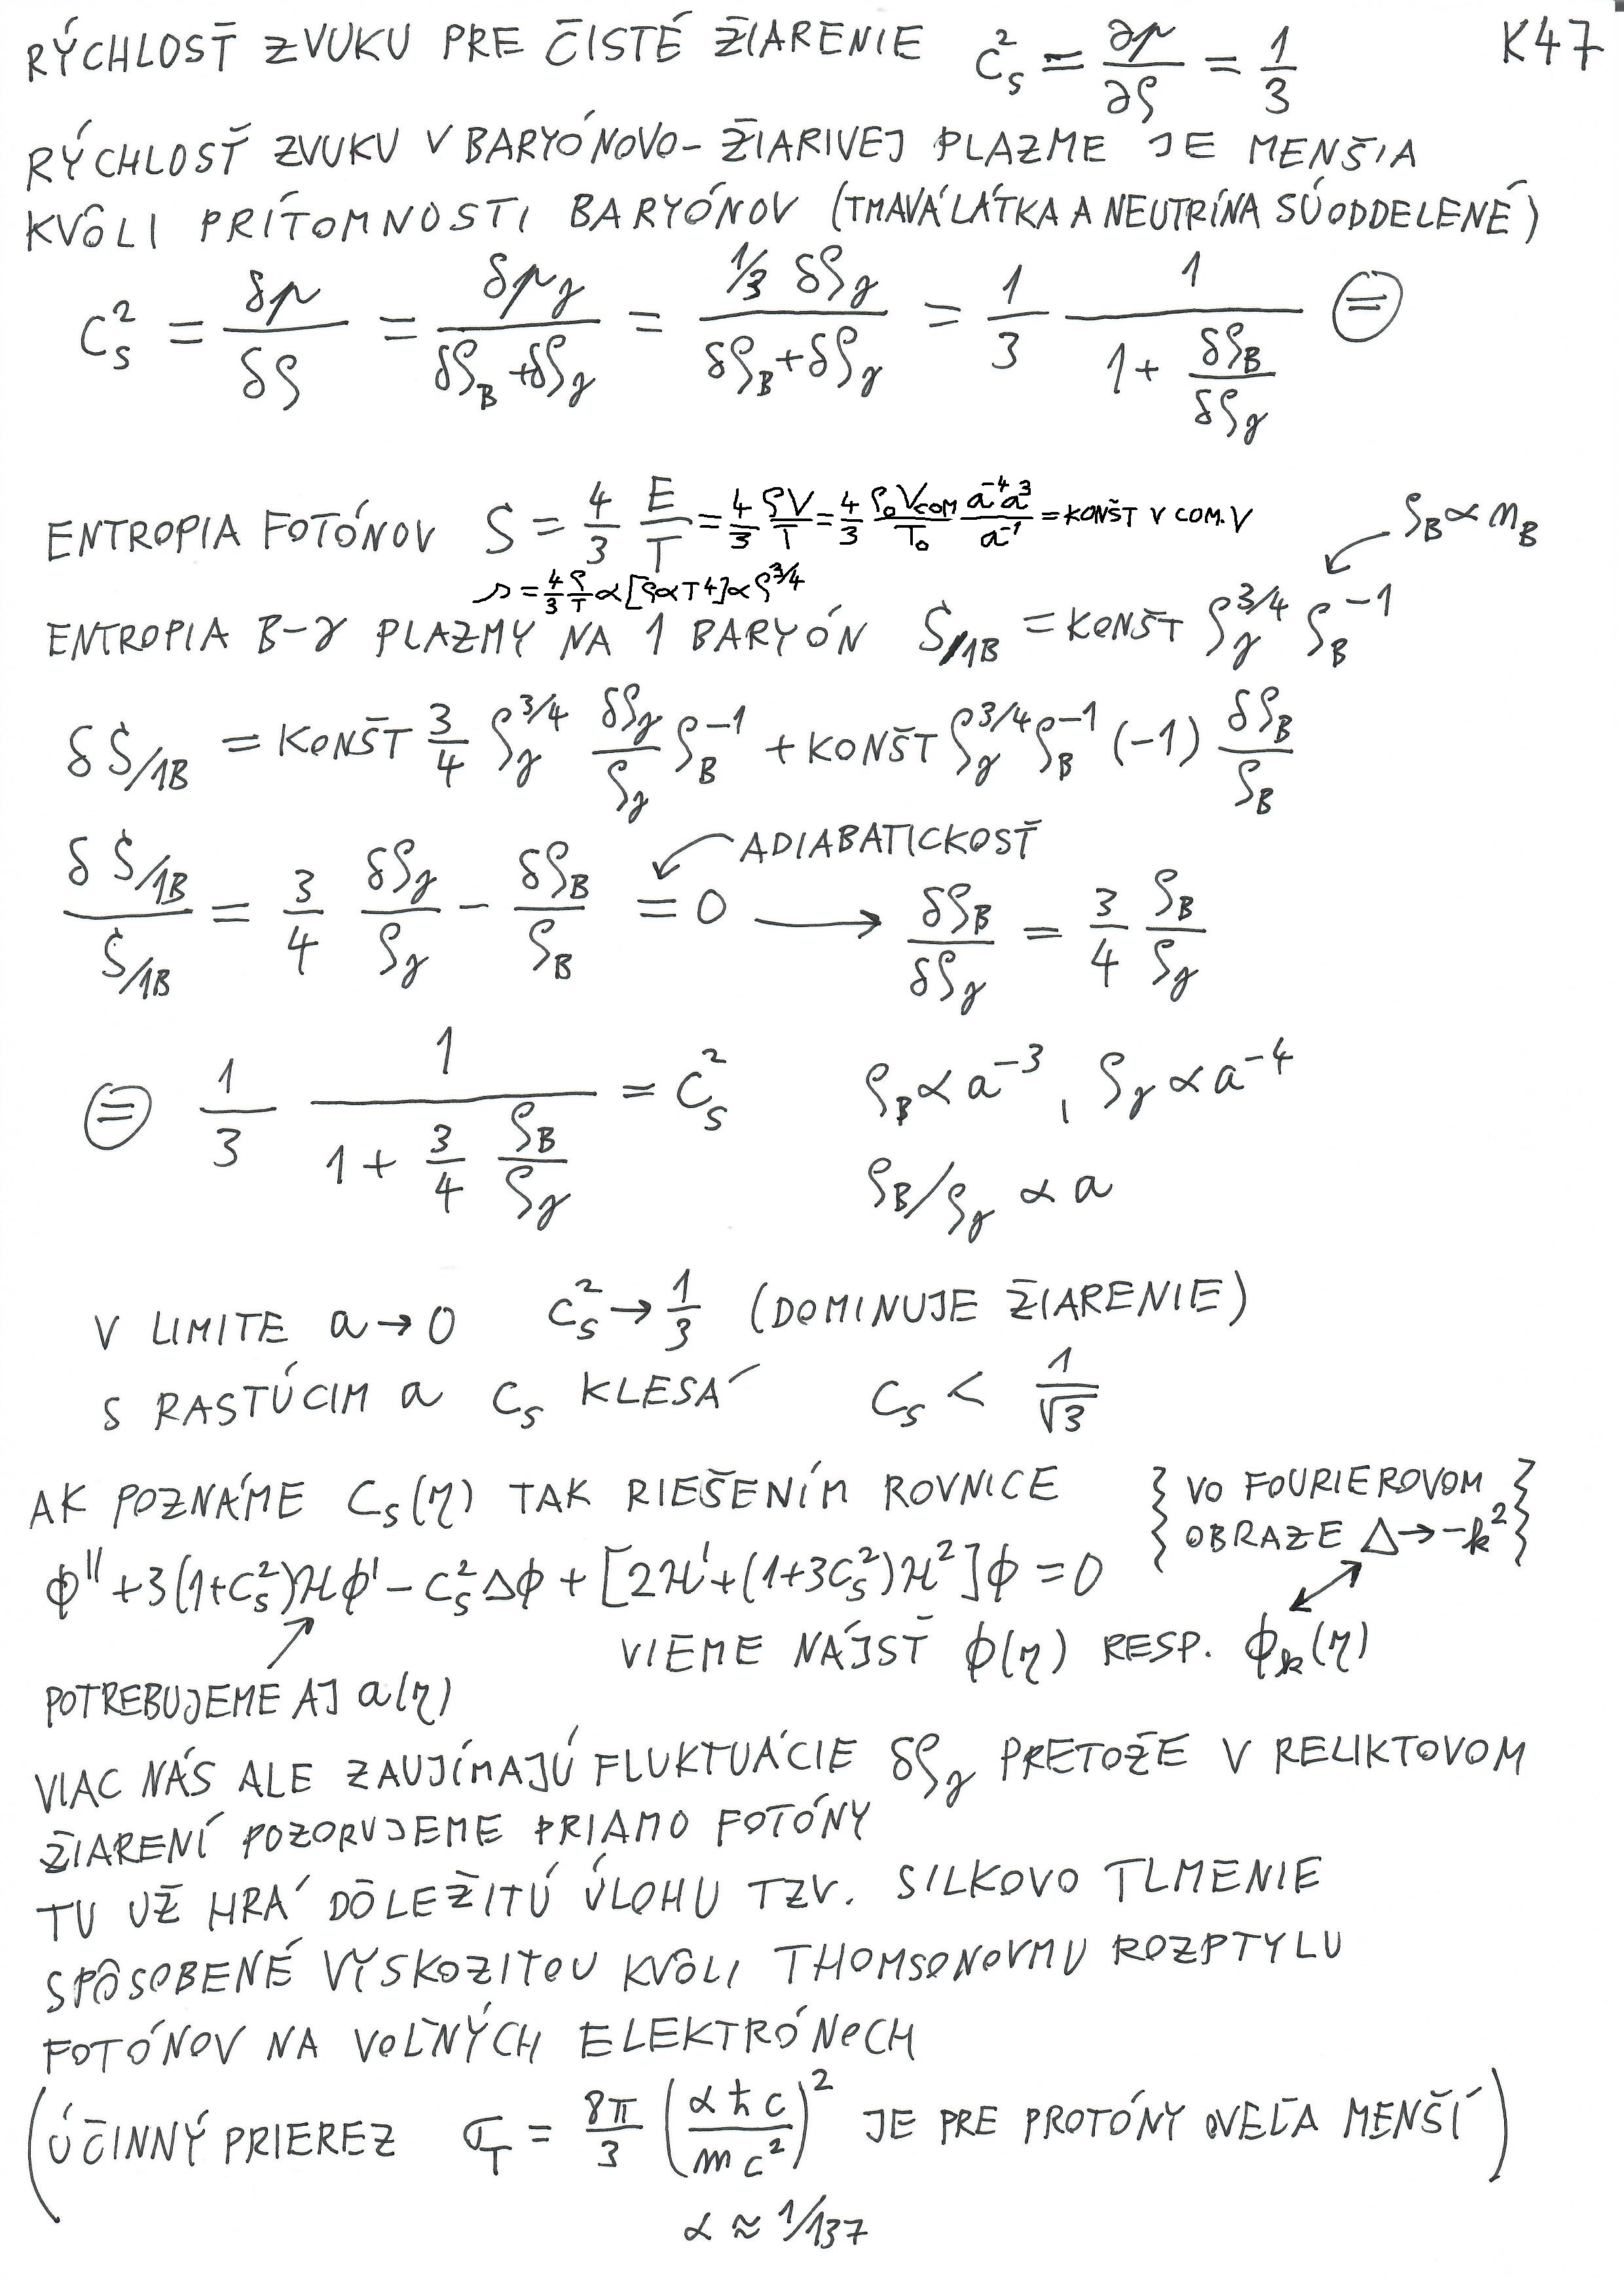 RÝCHLOSŤ ZVUKU PRE ČISTÉ ŽIARENIE c_s^2 = ∂p/∂ρ = 1/3 K47
RÝCHLOSŤ ZVUKU V BARYÓNOVO-ŽIARIVEJ PLAZME JE MENŠIA
KVÔLI PRÍTOMNOSTI BARYÓNOV (TMAVÁ LÁTKA A NEUTRÍNA SÚ ODDELENÉ)
c_s^2 = δp/δρ = δp_γ/(δρ_B + δρ_γ) = (1/3 δρ_γ)/(δρ_B + δρ_γ) = 1/3 1/(1 + δρ_B/δρ_γ) ⊜
ENTROPIA FOTÓNOV S = 4/3 E/T = 4/3 ρV/T = 4/3 (ρ_0 V_COM)/T_0 (a^-4 a^3)/a^-1 = KONŠT V COM. V ρ_B ∝ n_B
s = 4/3 ρ/T ∝ [ρ ∝ T^4] ∝ ρ^3/4
ENTROPIA B-γ PLAZMY NA 1 BARYÓN S_/1B = KONŠT ρ_γ^3/4 ρ_B^-1
δS_/1B = KONŠT 3/4 ρ_γ^3/4 δρ_γ/ρ_γ ρ_B^-1 + KONŠT ρ_γ^3/4 ρ_B^-1 (-1) δρ_B/ρ_B
ADIABATICKOSŤ
δS_/1B / S_/1B = 3/4 δρ_γ/ρ_γ - δρ_B/ρ_B = 0 → δρ_B/δρ_γ = 3/4 ρ_B/ρ_γ
⊜ 1/3 1/(1 + 3/4 ρ_B/ρ_γ) = c_s^2 ρ_B ∝ a^-3, ρ_γ ∝ a^-4
ρ_B/ρ_γ ∝ a
V LIMITE a → 0 c_s^2 → 1/3 (DOMINUJE ŽIARENIE)
S RASTÚCIM a c_s KLESÁ c_s < 1/√3
AK POZNÁME c_s(η) TAK RIEŠENÍM ROVNICE } VO FOURIEROVOM {
} OBRAZE Δ → -k^2 {
ϕ'' + 3(1+c_s^2)ℋϕ' - c_s^2 Δϕ + [2ℋ' + (1+3c_s^2)ℋ^2]ϕ = 0
VIEME NÁJSŤ ϕ(η) RESP. ϕ_k(η)
POTREBUJEME AJ a(η)
VIAC NÁS ALE ZAUJÍMAJÚ FLUKTUÁCIE δρ_γ PRETOŽE V RELIKTOVOM
ŽIARENÍ POZORUJEME PRIAMO FOTÓNY
TU UŽ HRÁ DÔLEŽITÚ ÚLOHU TZV. SILKOVO TLMENIE
SPÔSOBENÉ VYSKOZITOU KVÔLI THOMSONOVMU ROZPTYLU
FOTÓNOV NA VOĽNÝCH ELEKTRÓNOCH
(ÚČINNÝ PRIEREZ σ_T = 8π/3 (αħc/mc^2)^2 JE PRE PROTÓNY OVEĽA MENŠÍ)
α ≈ 1/137